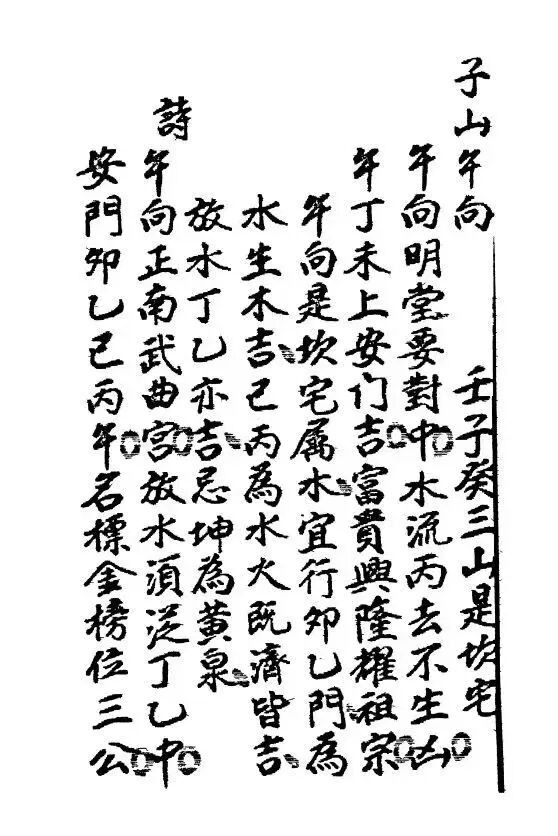 子山午向　壬子癸三山是坎宅
午向明堂要對中水流丙去不生凶
午丁未上安门吉富貴興隆耀祖宗
午向是坎宅属水宜行卯乙門為
水生木吉巳丙為水火既濟皆吉
放水丁乙亦吉忌坤為黃泉
詩
午向正南武曲宮放水須從丁乙中
安門卯乙巳丙午名標金榜位三公